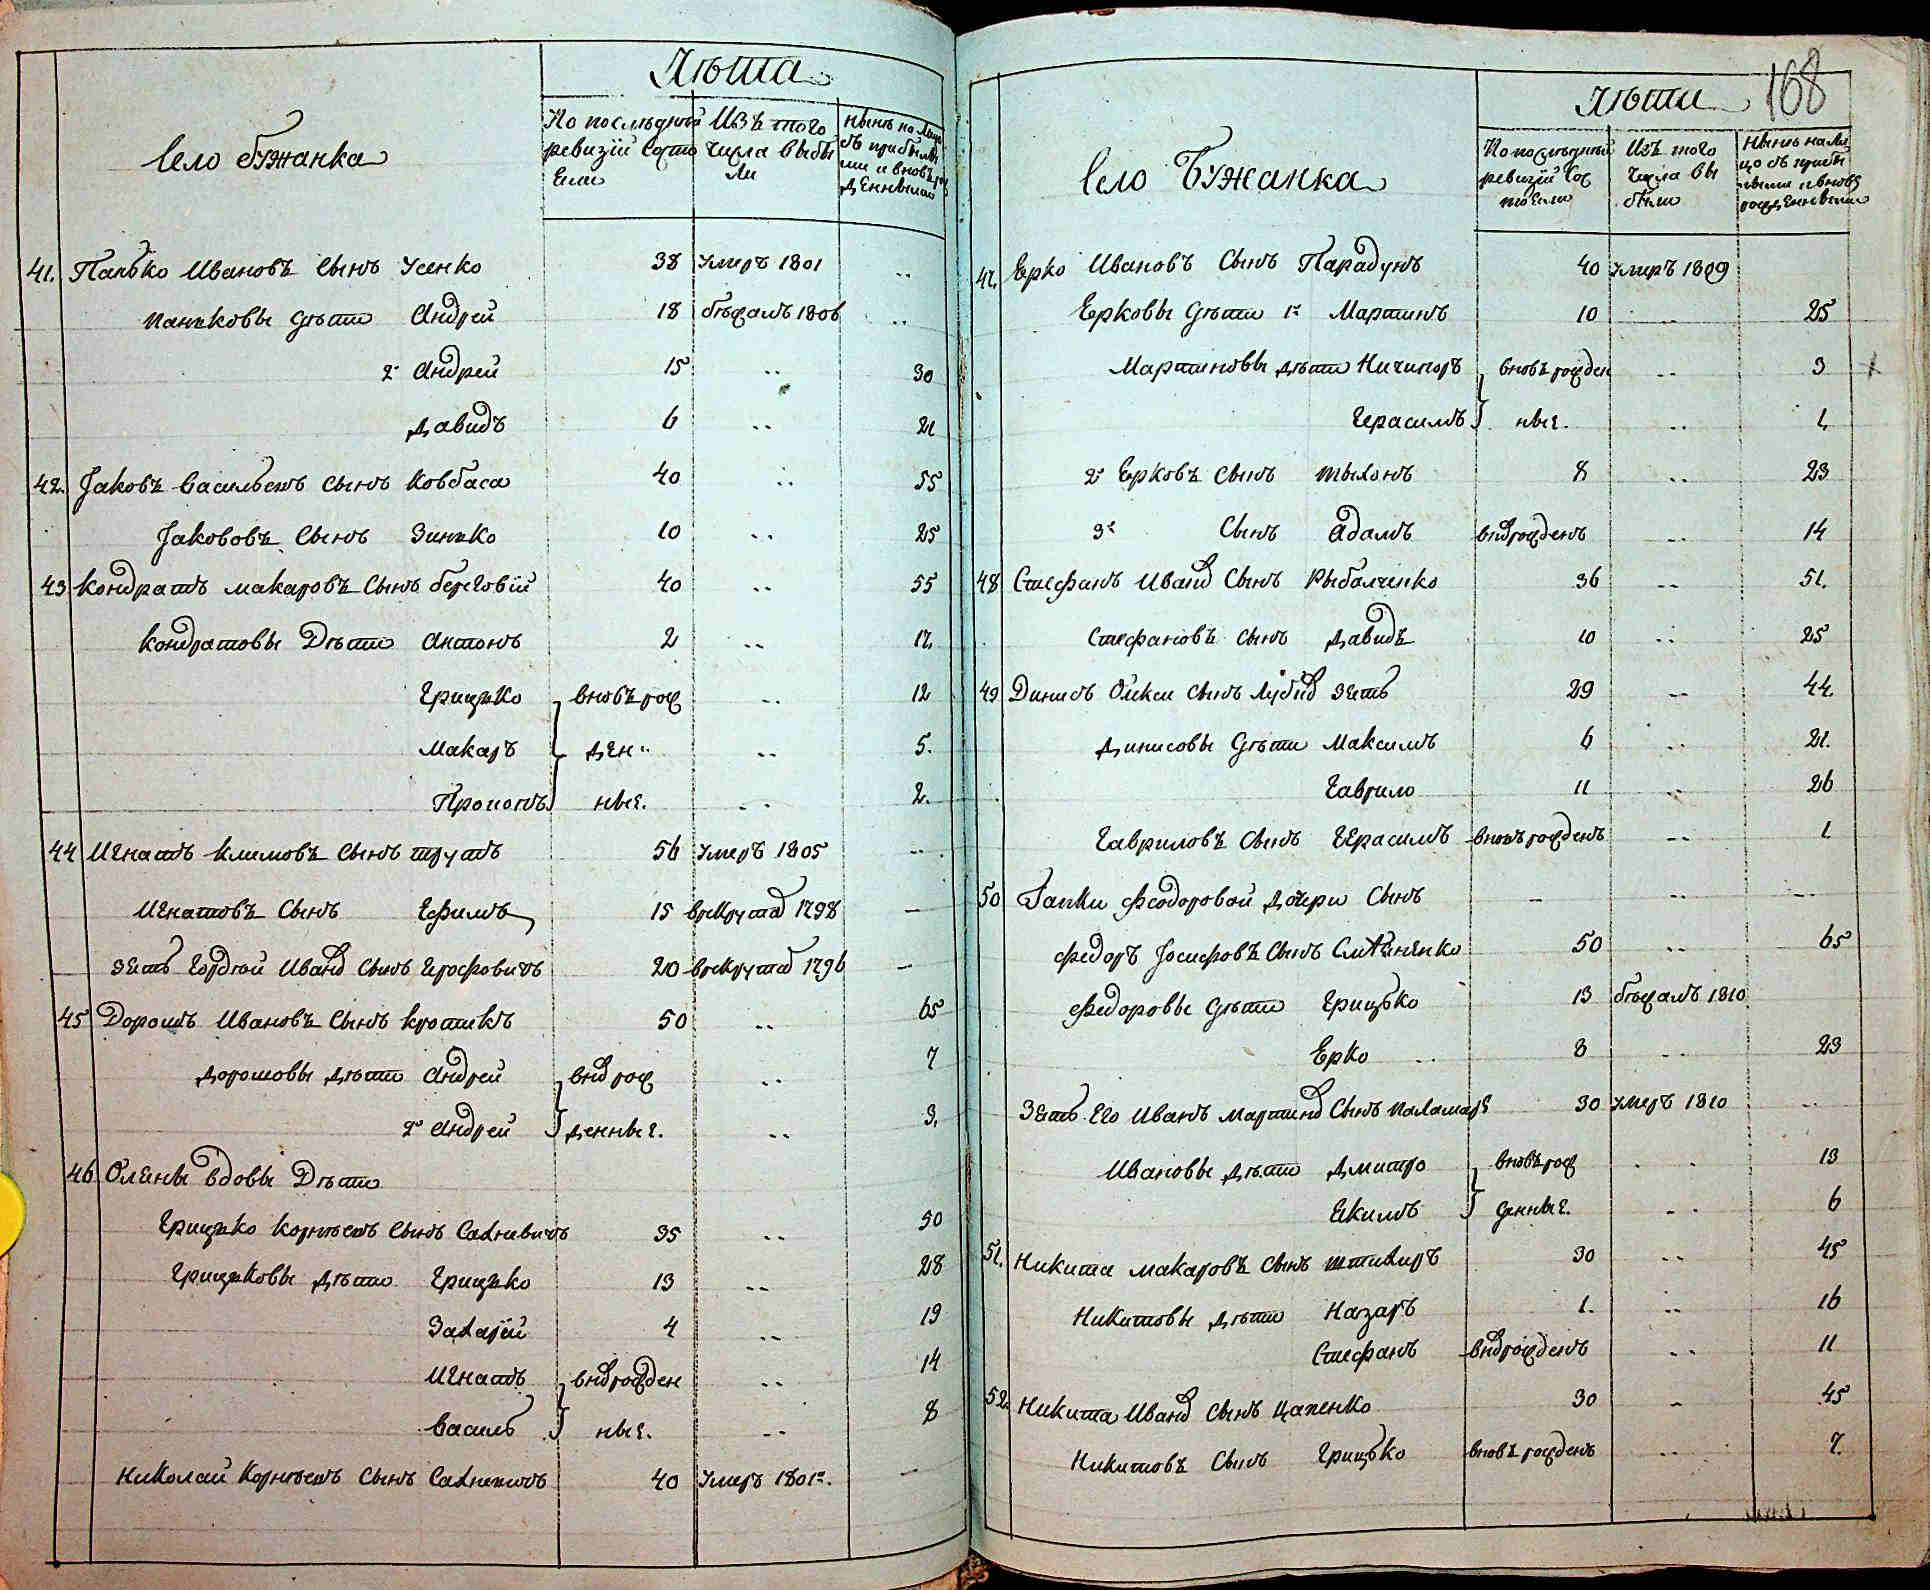 Село Бужанка
Лѣта
По последней ревизіи состо
яли
Изъ того числа выбы
ли
Нынѣ на лицо
съ прибылы
ми и вновь ро
жденными
41. Панько Ивановъ Сынъ Усенко 38 умеръ 1801 ..
Паньковы дѣти Андрей 18 бѣжалъ 1806 ..
2й Андрей 15 .. 30
Давидъ 6 .. 21
42. Яковъ Васильевъ Сынъ Ковбаса 40 .. 55
Якововъ Сынъ Зинько 10 .. 25
43 Кондратъ Макаровъ Сынъ береговій 40 .. 55
Кондратовы Дѣти Антонъ 2 .. 17.
Грицько вновь рож .. 12
Макаръ ден .. 5.
Прокопъ ные. .. 2.
44 Игнатъ Климовъ Сынъ трутъ 56 умеръ 1805 ..
Игнатовъ Сынъ Ефимъ 15 врекруты 1798 —
зять Гордѣй Ивановъ Сынъ 20 врекруты 1796 —
45 Дорошъ Ивановъ Сынъ Кротикъ 50 .. 65
Дорошовы дѣти Андрей внов рож .. 7
2й Андрей денные. .. 3.
46 Олены вдовы Дѣти
Грицько Корнѣевъ Сынъ Сахневичъ 35 .. 50
Грицьковы дѣти Грицько 13 .. 28
Захарій 4 .. 19
Игнатъ внов рожден .. 14
Василь ные. .. 8
Николай Корнѣевъ Сынъ 40 Умеръ 1801го. —
168
Село Бужанка
Лѣта
По последней
ревизіи сос
тояли
Изъ того
числа вы
были
Нынѣ на ли
цо съ прибы
лыми и вновь
рожденными
47. Ерко Ивановъ Сынъ Парадунъ 40 умеръ 1809
Ерковы дѣти 1й Мартинъ 10 .. 25
Мартиновы дѣти Ничипоръ вновь рожден .. 3
Герасимъ ные. .. 1
2й Ерковъ Сынъ тыхонъ 8 .. 23
3й Сынъ Адамъ внов рожденъ .. 14
48 Стефанъ Ивановъ Сынъ Рыбалченко 36 .. 51.
Стефановъ Сынъ Давидъ 10 .. 25
49 Динисъ Олекси Сынъ зять 29 .. 44.
Динисовы дѣти Максимъ 6 .. 21.
Гаврило 11 .. 26
Гавриловъ Сынъ Герасимъ вновь рожденъ .. 1
50 Гапки Феодоровой дочери Сынъ — .. ..
Федоръ Іосифовъ Сынъ 50 .. 65
Федоровы дѣти Грицько 13 бѣжалъ 1810
Ерко .. 8 .. 23
Зять Его Иванъ Мартиновъ Сынъ паламаръ 30 умеръ 1810 ..
Ивановы дѣти Дмитро вновь рож .. 13
Екимъ денные. .. 6
51. Никита Макаровъ Сынъ 30 .. 45
Никитовы дѣти Назаръ 1. .. 16
Стефанъ внов рожденъ .. 11
52. Никита Ивановъ Сынъ Цапенко 30 .. 45
Никитовъ Сынъ Грицько вновь рожденъ .. 7.